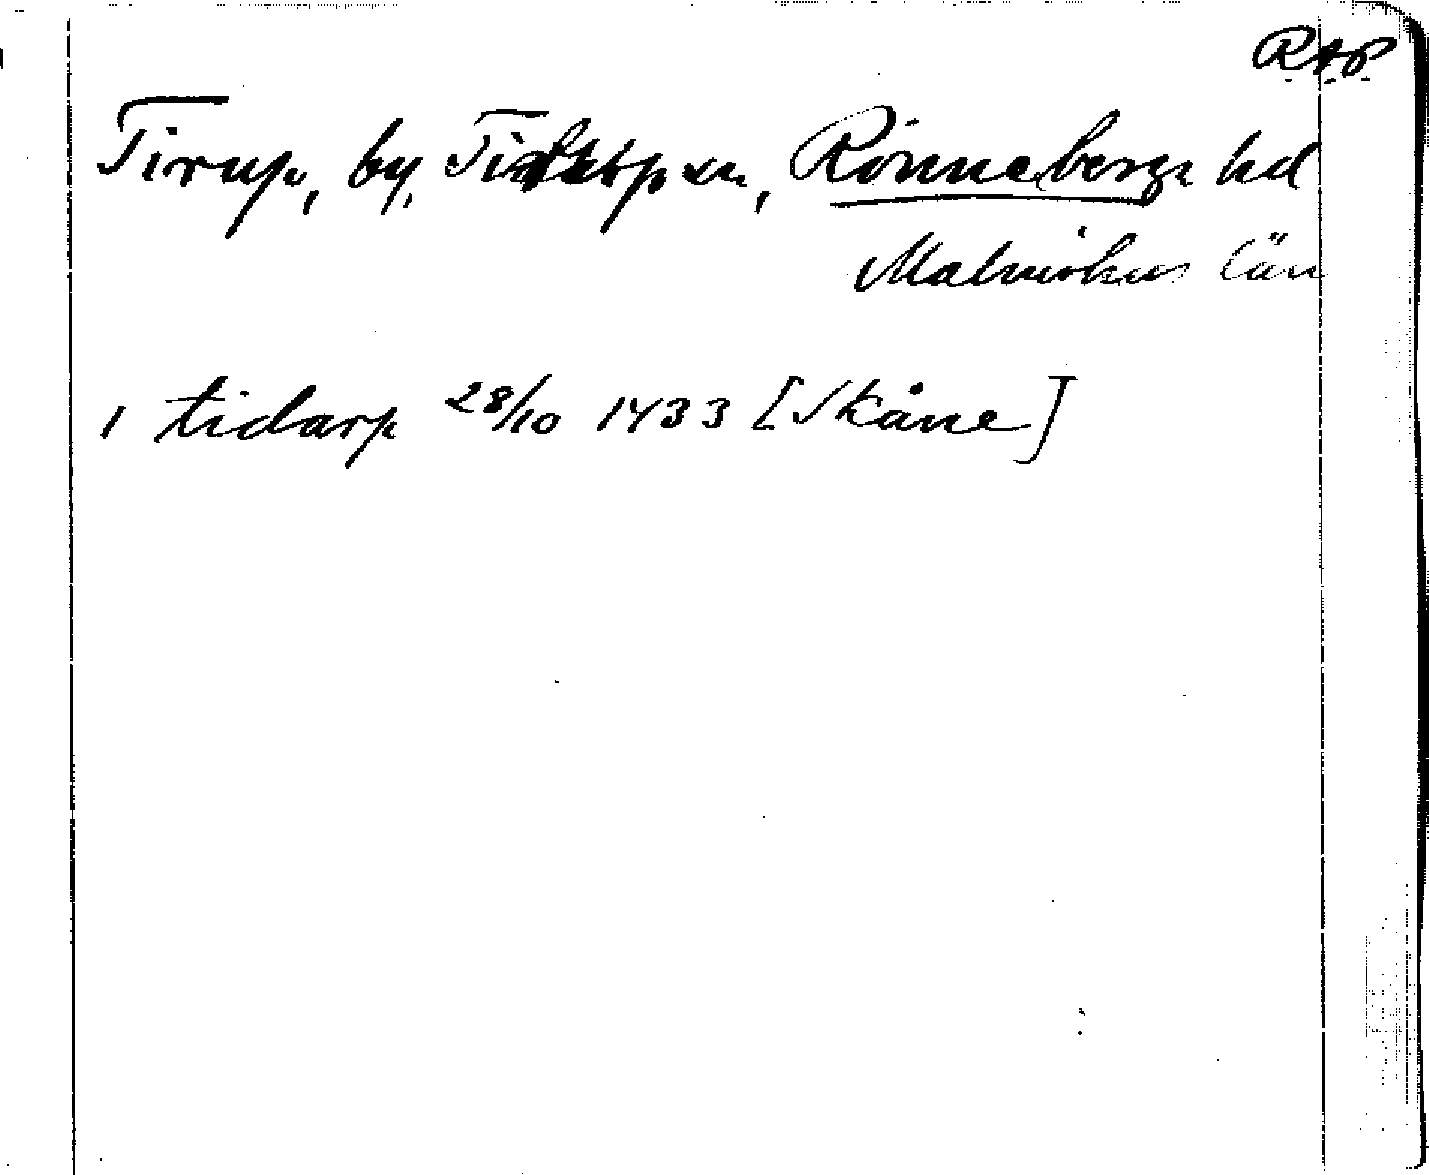 RAP
Tirup, by, sn, Rönnebergs hd
Malmöhus län
i tidarp 28/10 1433 [Skåne]